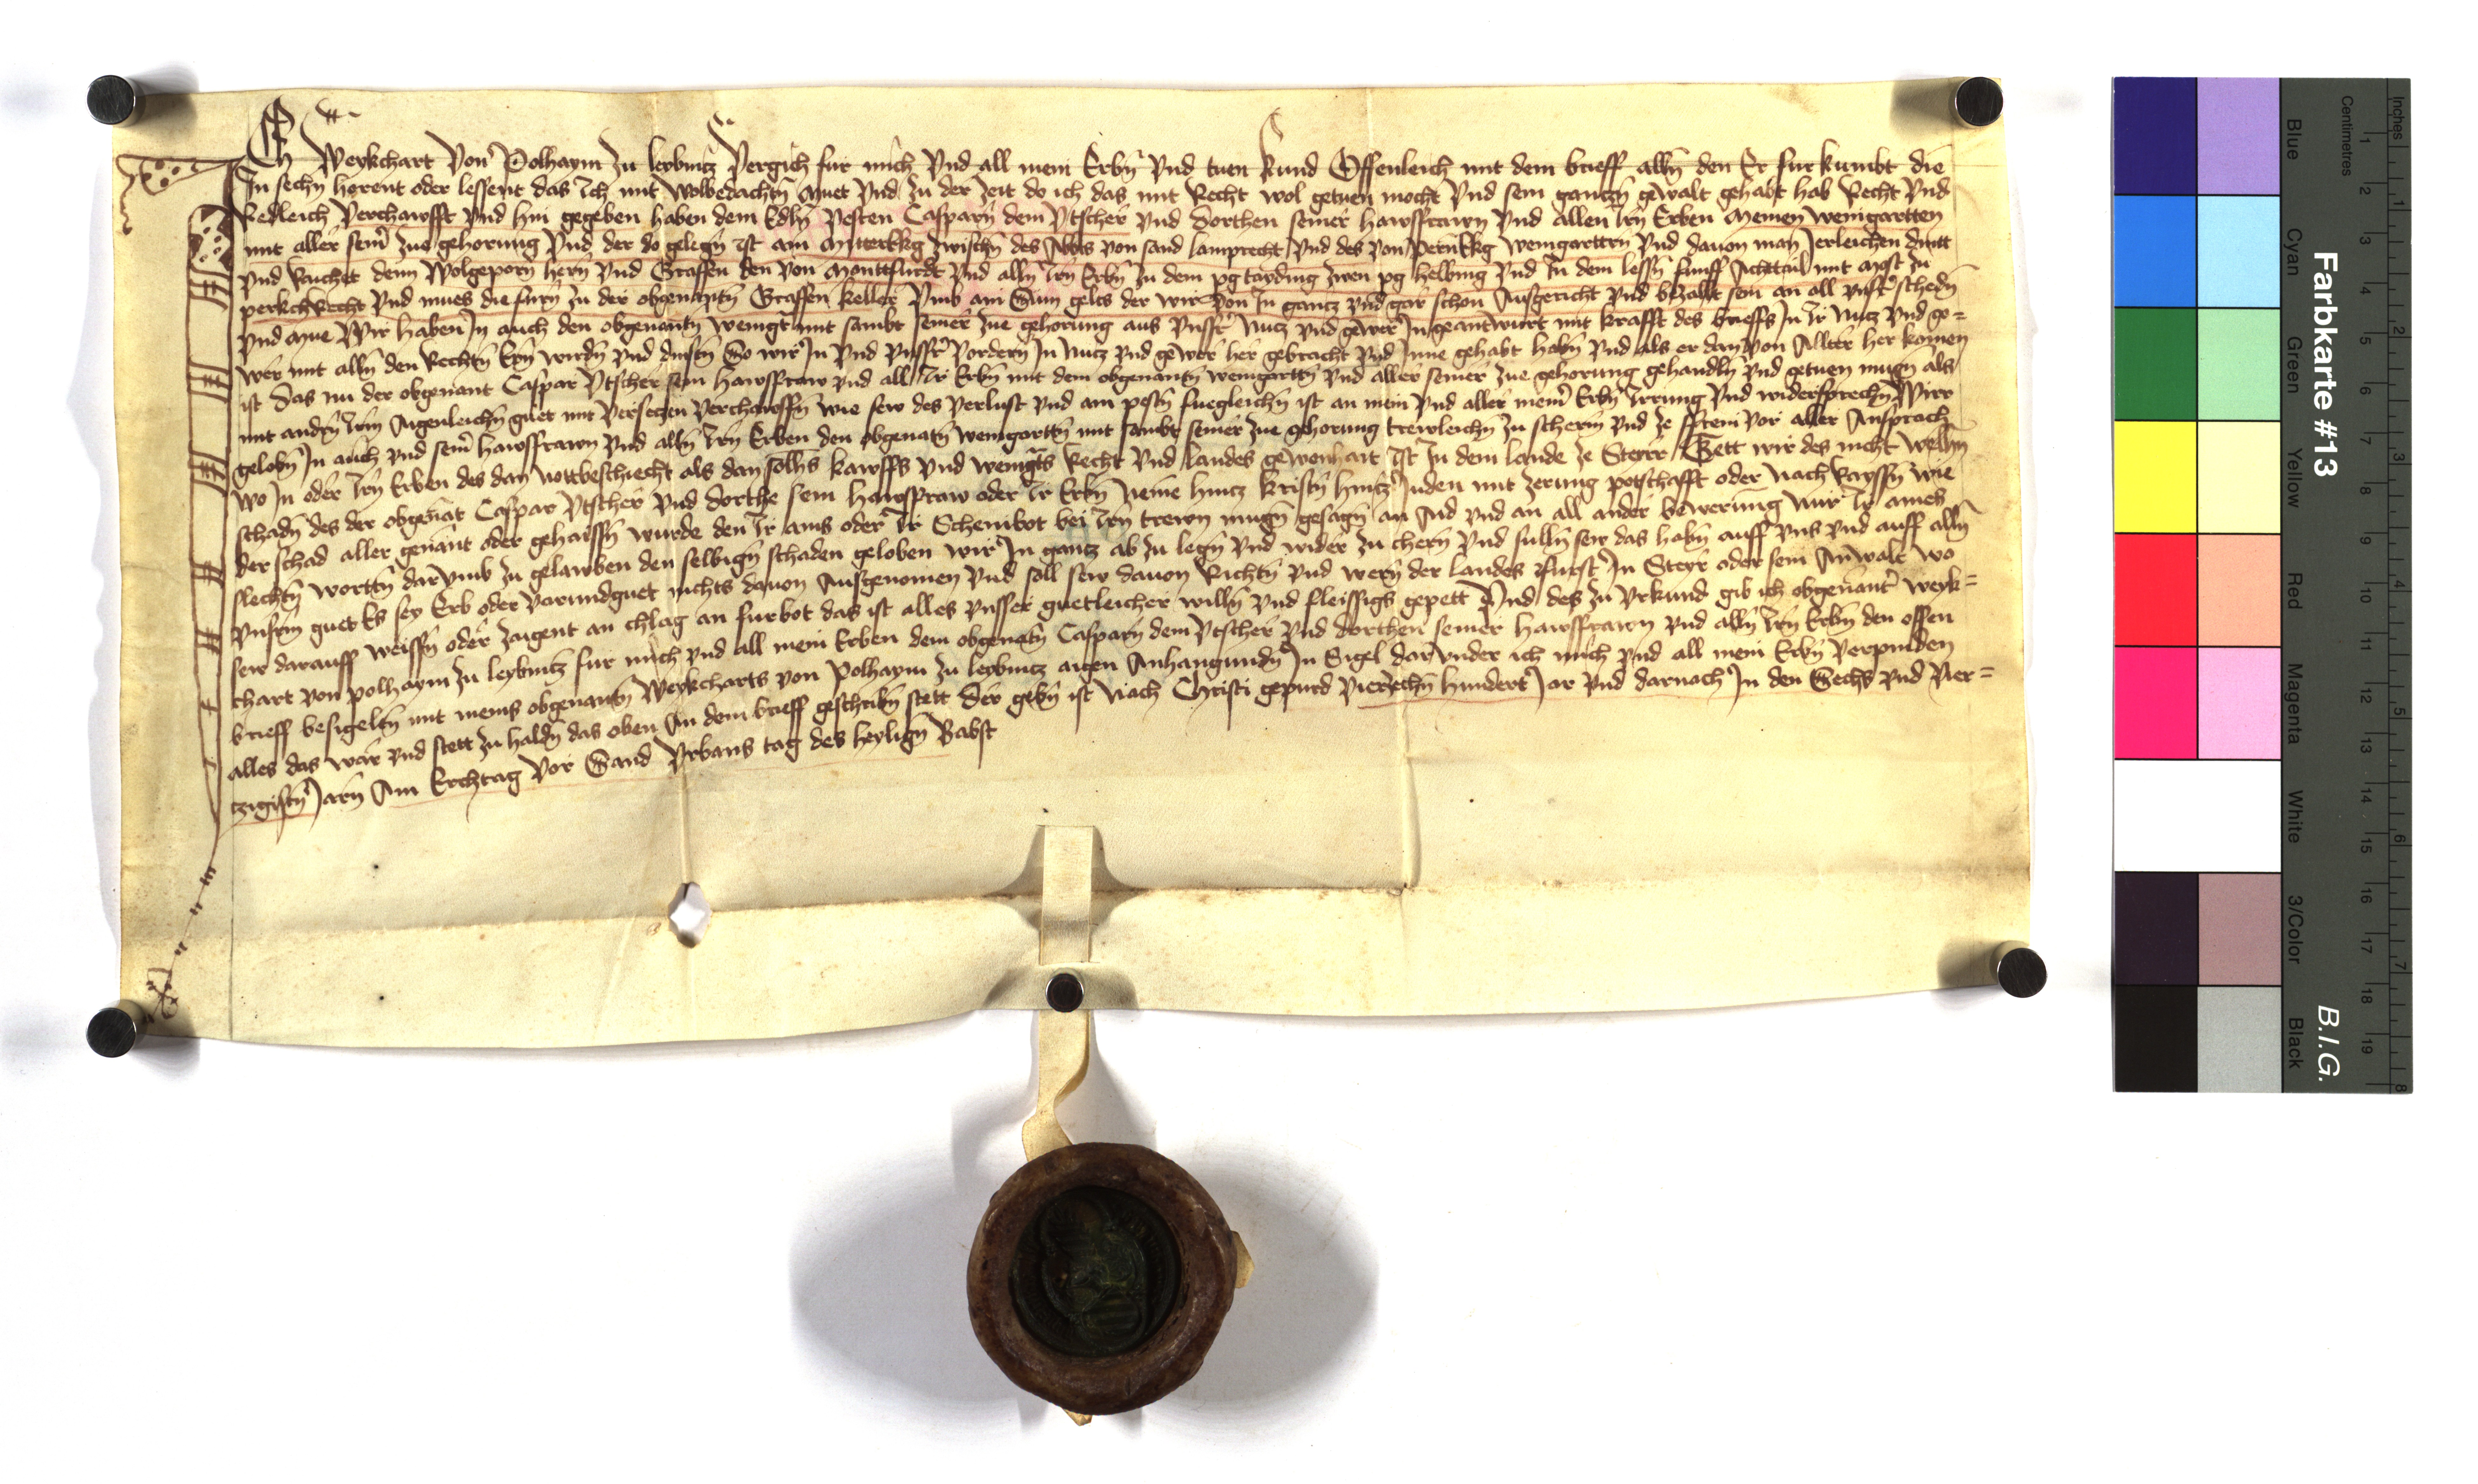 Ich Weykchart von Polhaym zu leybnicz vergich fur mich vnd all mein Erbn̄ vnd tuen kund Offenleich mit dem brieff alln̄ den Er furkumbt die
In sechn̄ horent oder lessent das Ich mit wolbedachtn̄ muet vnd zu der zeit do ich das mit Recht wol getuen mocht vnd sein gantzn̄ gewalt gehabt hab Recht vnd
Redleich verchawfft vnd hin gegeben haben dem Edln̄ vesten Casparn̄ dem vtscher vnd dorthen seiner hawsfrawn vnd allen Irn̄ Erben meinen weingartten
mit aller sein̄ zue gehorung vnd der do gelegn̄ ist am Mitterekkg zwischn̄ des Abts von sand lamprecht vnd des von Pernekkg weingarttn̄ vnd dauon man Ierleichen dint
vnd raichet dem wolgeporn̄ hern̄ vnd Graffen den von Monttfurdt vnd alln̄ Irn̄ Erbn̄ zu dem pg tayding zwen pg helbing vnd In dem lessn̄ funff Achttail mit Most zu
perkchrecht vnd mues die furn̄ zu der obgenantn̄ Graffen keller vmb ain Sum gelts der wir von In gantz vnd gar schon Ausgericht vnd bezallt sein an all vnsr̄ schedn̄
vnd mue Wir haben In auch den obgenantn̄ weingr̄t mit sambt seiner zue gehorung aus vnsr̄ Nutz vnd gewer In geantwurt mit krafft des brieffs In Ir Nutz vnd ge=
wer mit alln̄ den Rechtn̄ Ern̄ wirdn̄ vnd dinstn̄ So wir In vnd vnsr̄ vordern̄ In Nutz vnd gewer her gebracht vnd Inne gehabt habn̄ vnd als er dan von Allter her komen
ist das nu der obgenant Caspar vtscher sein hawsfraw vnd all Ir Erbn̄ mit dem obgenantn̄ weingarttn̄ vnd aller seiner zue gehorung gehandln̄ vnd getuen mugn̄ als
mit andn̄ Irm Aigenleichn̄ guet mit versetzen verchawffn̄ wie sew des verlust vnd am pestn̄ fuegleichn̄ ist an mein vnd aller mein̄ Erbn̄ Irrung vnd widersprechn̄ Wir
gelobn̄ In auch vnd sein̄ hawsfrawn vnd alln̄ Irn̄ Erben den obgenatn̄ weingarttn̄ mit sambt seiner zue gehorung trewleichn̄ zu scherm vnd ze ffreni vor aller Ansprach
wo In oder Irn̄ Erben des dan nottbeschiecht als dan sollhs kawffs vnd weingr̄ts Recht vnd landes gewonhait ist In dem lande ze Steyr Tett wir des nicht welhn̄
schadn̄ des der obgenāt Caspar vtscher vnd dorthe sein hawsfraw oder Ir Erbn̄ neme hintz kristn̄ hintz Juden mit zerung potschafft oder nach raysn̄ wie
der schad aller genant oder gehaissn̄ wurde den Ir ains oder Ir Scheinbot bei Irn̄ trewn mugn̄ gesagn̄ an Aid vnd an all ander bewerung nur Ir aines
slechtn̄ worttn̄ darvmb zu gelawben den selbign̄ schaden geloben wir In gantz ab zu legn̄ vnd wider zu chern̄ vnd sulln̄ sew das habn̄ auff vns vnd auff alln̄
vnserm guet Es sey Erb oder varundguet nichts dauon Ausgenomen vnd soll sew dauon Richtn̄ vnd wern̄ der landes Furst In Steyr oder sein Anwalt wo
sew darauff weissn̄ oder zaigent an chlag an furbot das ist alles vnsser guetleicher willn̄ vnd fleissigs gepett Vnd des zu vrkund gib ich obgenanter weyk=
chart von polhaym zu leybnitz fur mich vnd all mein Erben dem obgenatn̄ Casparn̄ dem vtscher vnd dorthen seiner hawsfrawn vnd alln̄ Irn̄ Erbn̄ den offen
brieff besigeltn̄ mit meins obgenantn̄ Weykcharts von Polhaym zu leybnitz aigen Anhangundn̄ In Sigel darvnder ich mich vnd all mein Erbn̄ verpinden
alles das war vnd stett zu haldn̄ das oben An dem brieff geschribn̄ stett der gebn̄ ist Nach Christi gepurd vierzechn̄ hundert Jar vnd darnach In den Sechs vnd vier=
tzigistn̄ Jarn̄ Am Erchtag vor Sand Vrbans tag des heylign̄ Babst
Farbkarte #13
B.I.G.
Blue Cyan Green Yellow Red Magenta White 3/Color Black
Inches 1 2 3 4 5 6 7 8
Centimetres 1 2 3 4 5 6 7 8 9 10 11 12 13 14 15 16 17 18 19